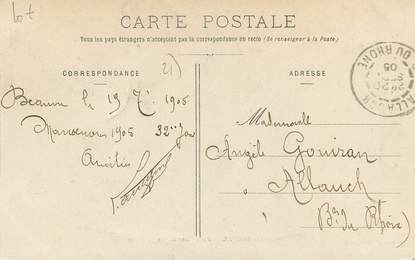 lot
CARTE POSTALE
Tous les pays étrangers n'acceptent pas la correspondance au recto (Se renseigner à la Poste).
CORRESPONDANCE
21)
ADRESSE
Beaune le 19 7e 1905
Manoeuvres 1905 32e jour
Amitiés
Mademoiselle
Angèle Gouiran
à Allauch
Bes du Rhône)
ALLAUCH
DU RHONE
20
05